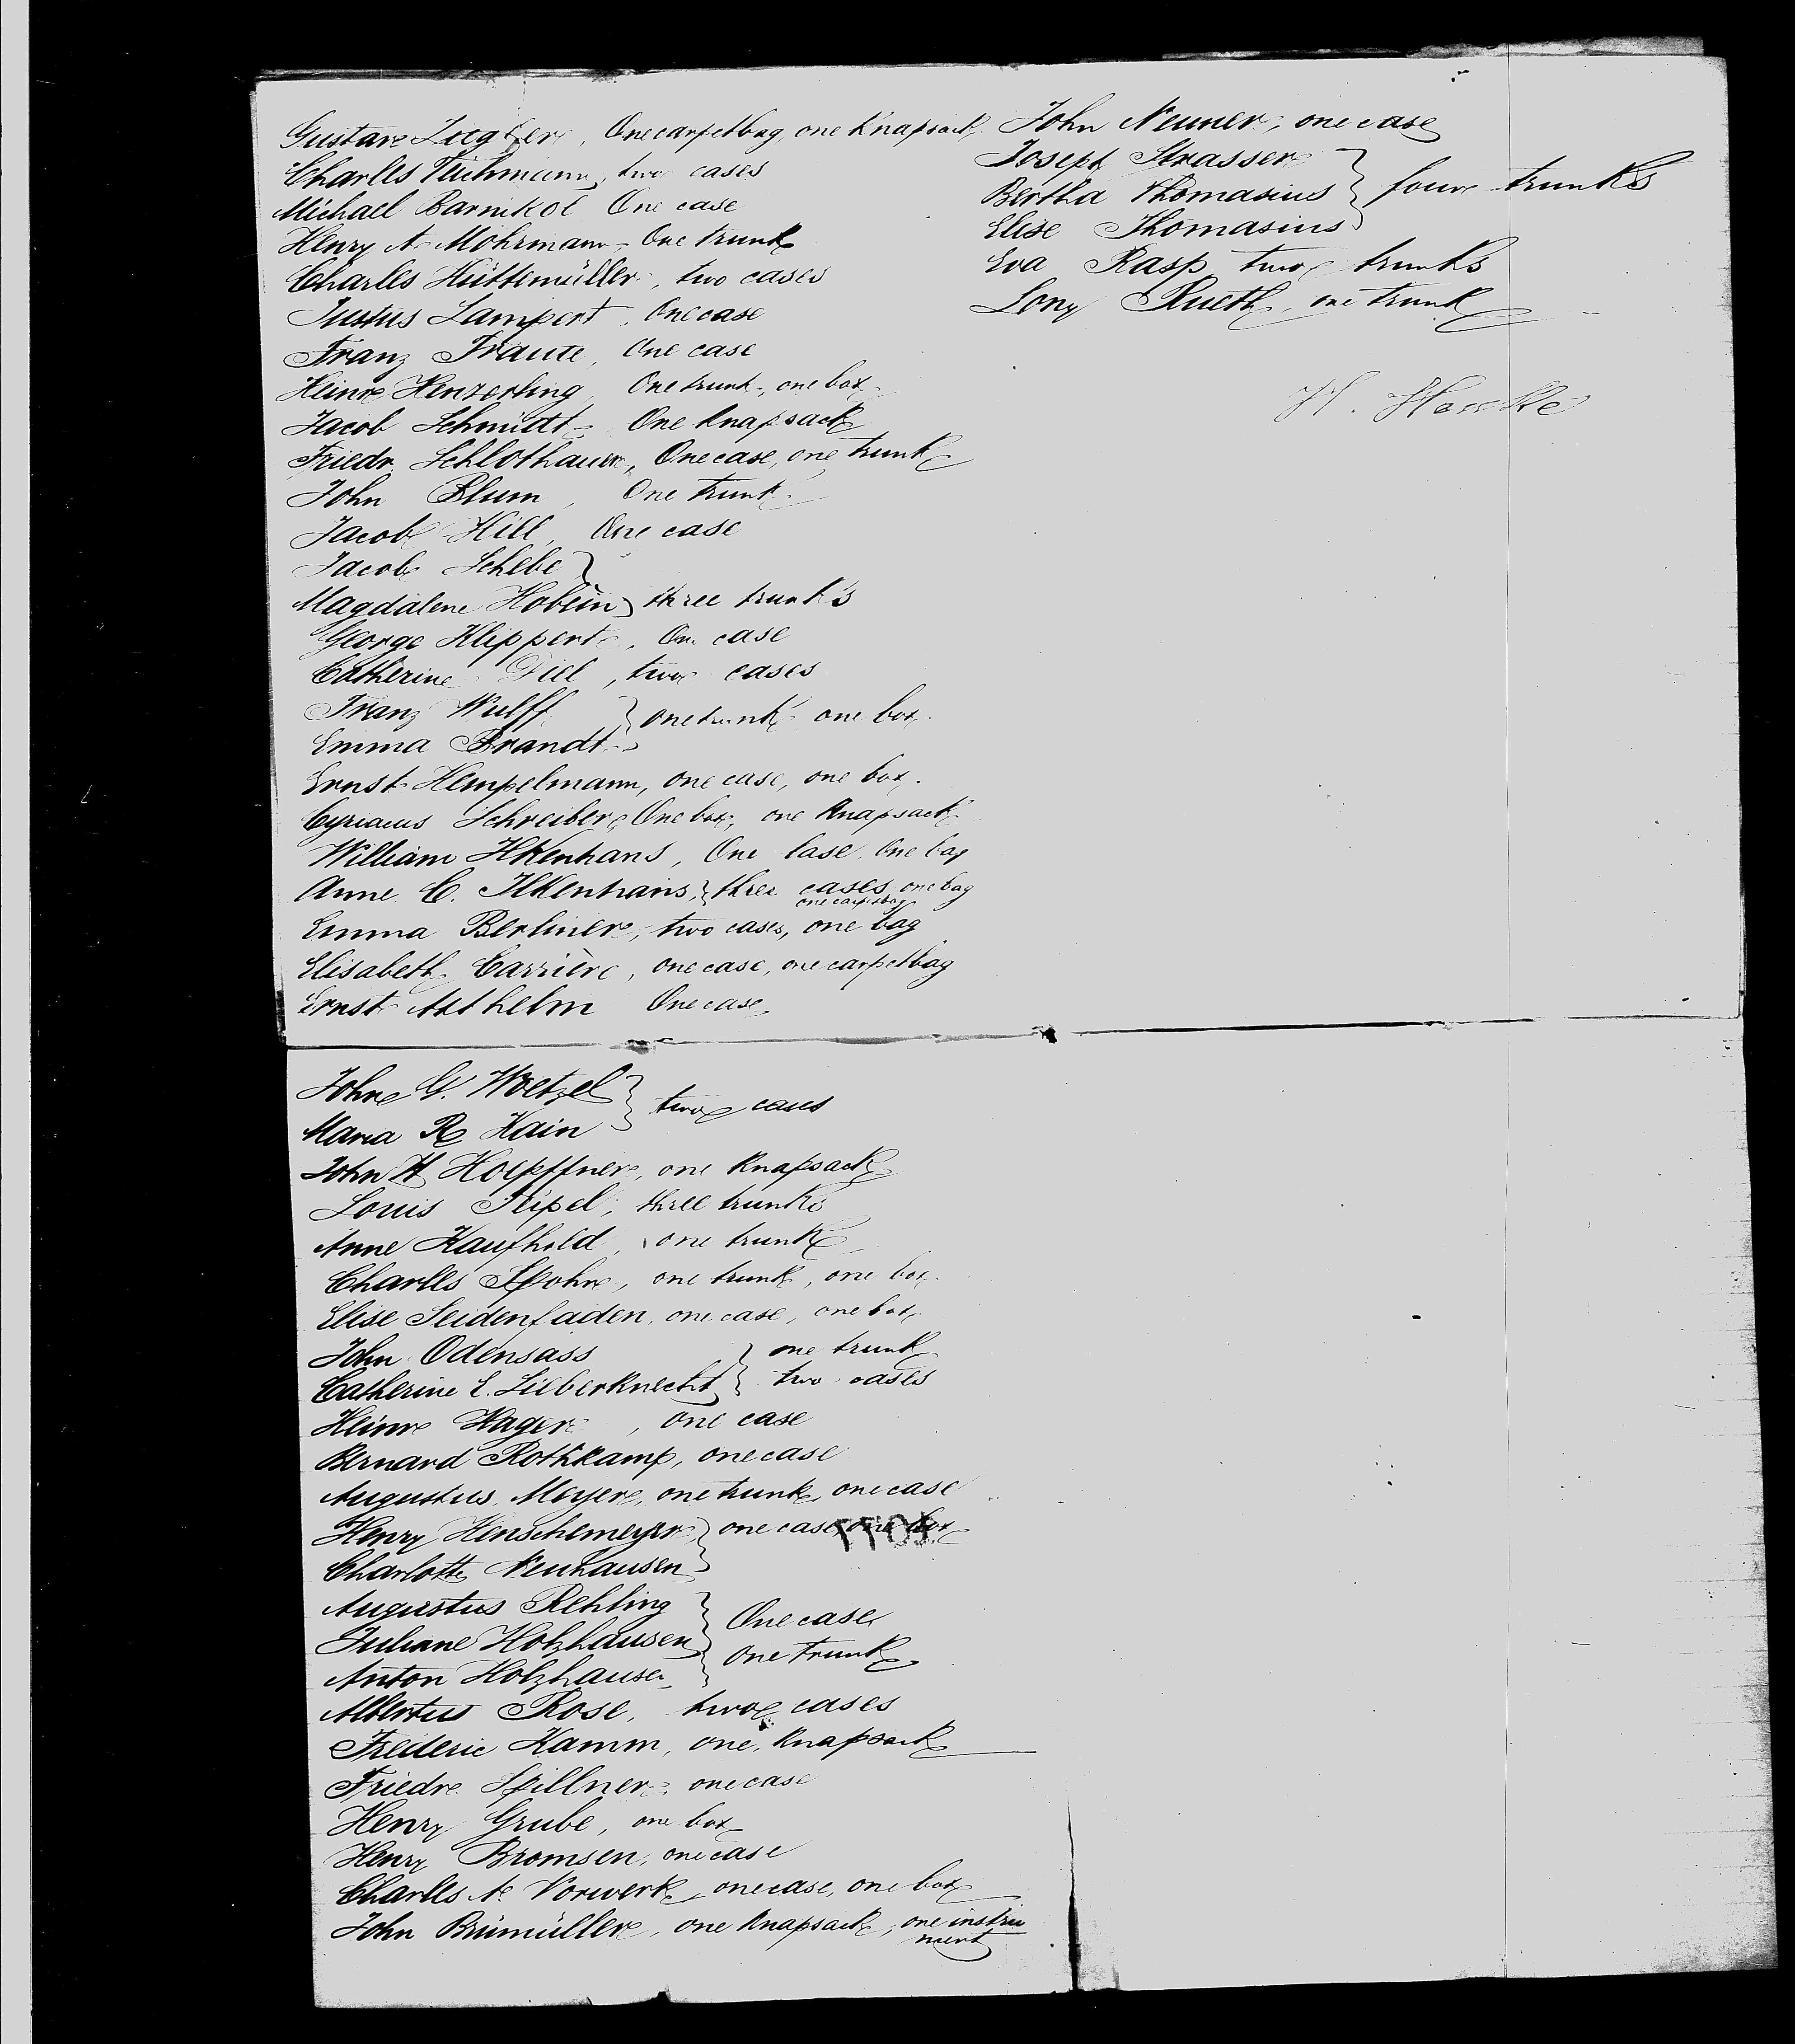 Gustav Ziegler, One carpetbag, one Knapsack
Charles Teichmann, two cases
Michael Barnikol One case
Henry A. Mohrmann - One trunk
Charles Hüttemüller, two cases
Justus Lampert, One case
Franz Traute, One case
Heinr Henzerling, One trunk, one box
Jacob Schmidt - One Knapsack
Friedr. Schlothauer, One case, one trunk
John Blum, One trunk
Jacob Hill, One case
Jacob Schebe }
Magdalene Hobein } three trunks
George Klippert, One case
Catherine Dill, two cases
Franz Wulff } one trunk one box
Emma Brandt
Ernst Hempelmann, one case, one box.
Cyriacus Schreiber, One box, one Knapsack
William Ilkenhans, One case, One bag
Anne C. Ilkenhans, } three cases, one bag
one carpetbag
Emma Berliner, two cases, one bag
Elisabeth Carrière, one case, one carpetbag
Ernst Asthelm One case
John G. Woetzel } two cases
Maria R Hain
John H Hoepffner, one Knapsack
Louis Teipel, three trunks
Anne Kaufhold, one trunk
Charles Spohr, one trunk, one box
Elise Seidenfaden, one case, one box
John Odensass } one trunk
Catherine E. Lieberknecht } two cases
Heinr Hager, one case
Bernard Rothkamp, one case
Augustus Meyer, one trunk, one case
Henry Henschemeyer } one case one box
Charlotte Neuhausen
Augustus Rehling } One case
Juliane Holzhausen } One trunk
Anton Holzhausen
Albertus Rose, two cases
Frederic Hamm, one Knapsack
Friedr Spillner, one case
Henry Grube, one box
Henry Bromsen, one case
Charles A. Vorwerk, one case, one box
John Brümüller, one Knapsack, one instru
ment
John Neuner, one case
Joseph Strasser
Bertha Thomasius } four trunks
Elise Thomasius
Eva Rasp two trunks
Lony Rueth, one trunk